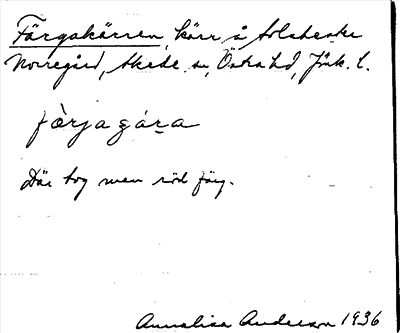 Färgakärren, kärr å Solaberke
Norregård, Skede sn, Östra hd, Jönk. l.
fàrjagɔ́ra
Där tog man röd färg.
Annalisa Anderson 1936